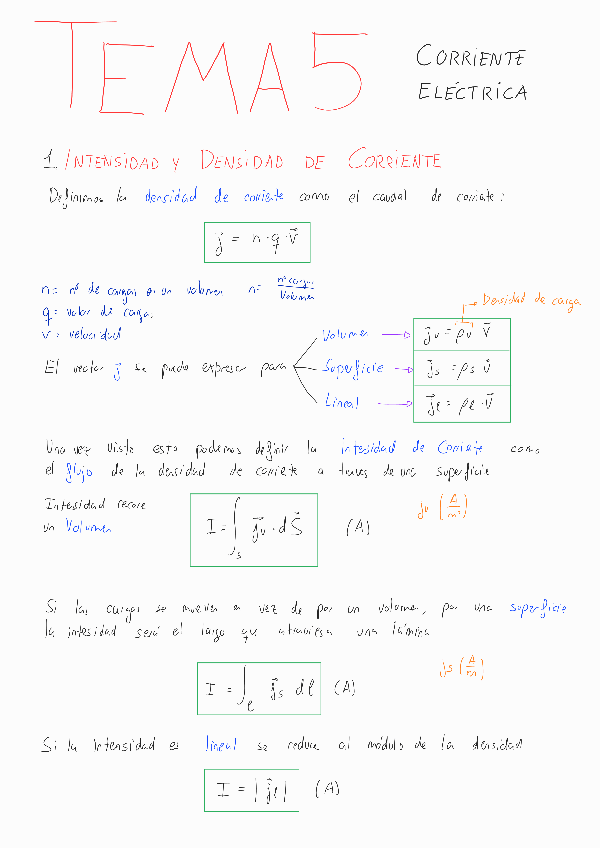 TEMA 5
CORRIENTE
ELÉCTRICA
1. INTENSIDAD Y DENSIDAD DE CORRIENTE
Definimos la densidad de corriente como el caudal de corriente:
j⃗ = n · q · v⃗
n = nº de cargas en un volumen n = nº cargas / Volumen
q = valor de carga.
v = velocidad
→ Densidad de carga
El vector j⃗ se puede expresar para
Volumen → j⃗v = ρv · v⃗
Superficie → j⃗s = ρs · v⃗
Lineal → j⃗l = ρl · v⃗
Una vez visto esto podemos definir la intesidad de Corriente como
el flujo de la densidad de corriente a traves de una superficie
Intesidad recorre
un Volumen
I = ∫s j⃗v · dS⃗ (A)
jv (A/m²)
Si las cargas se mueven en vez de por un volumen, por una superficie
la intesidad será el rasgo que atraviesa una lámina
I = ∫l j⃗s dl (A)
js (A/m)
Si la Intensidad es lineal se reduce al módulo de la densidad
I = |j⃗l| (A)